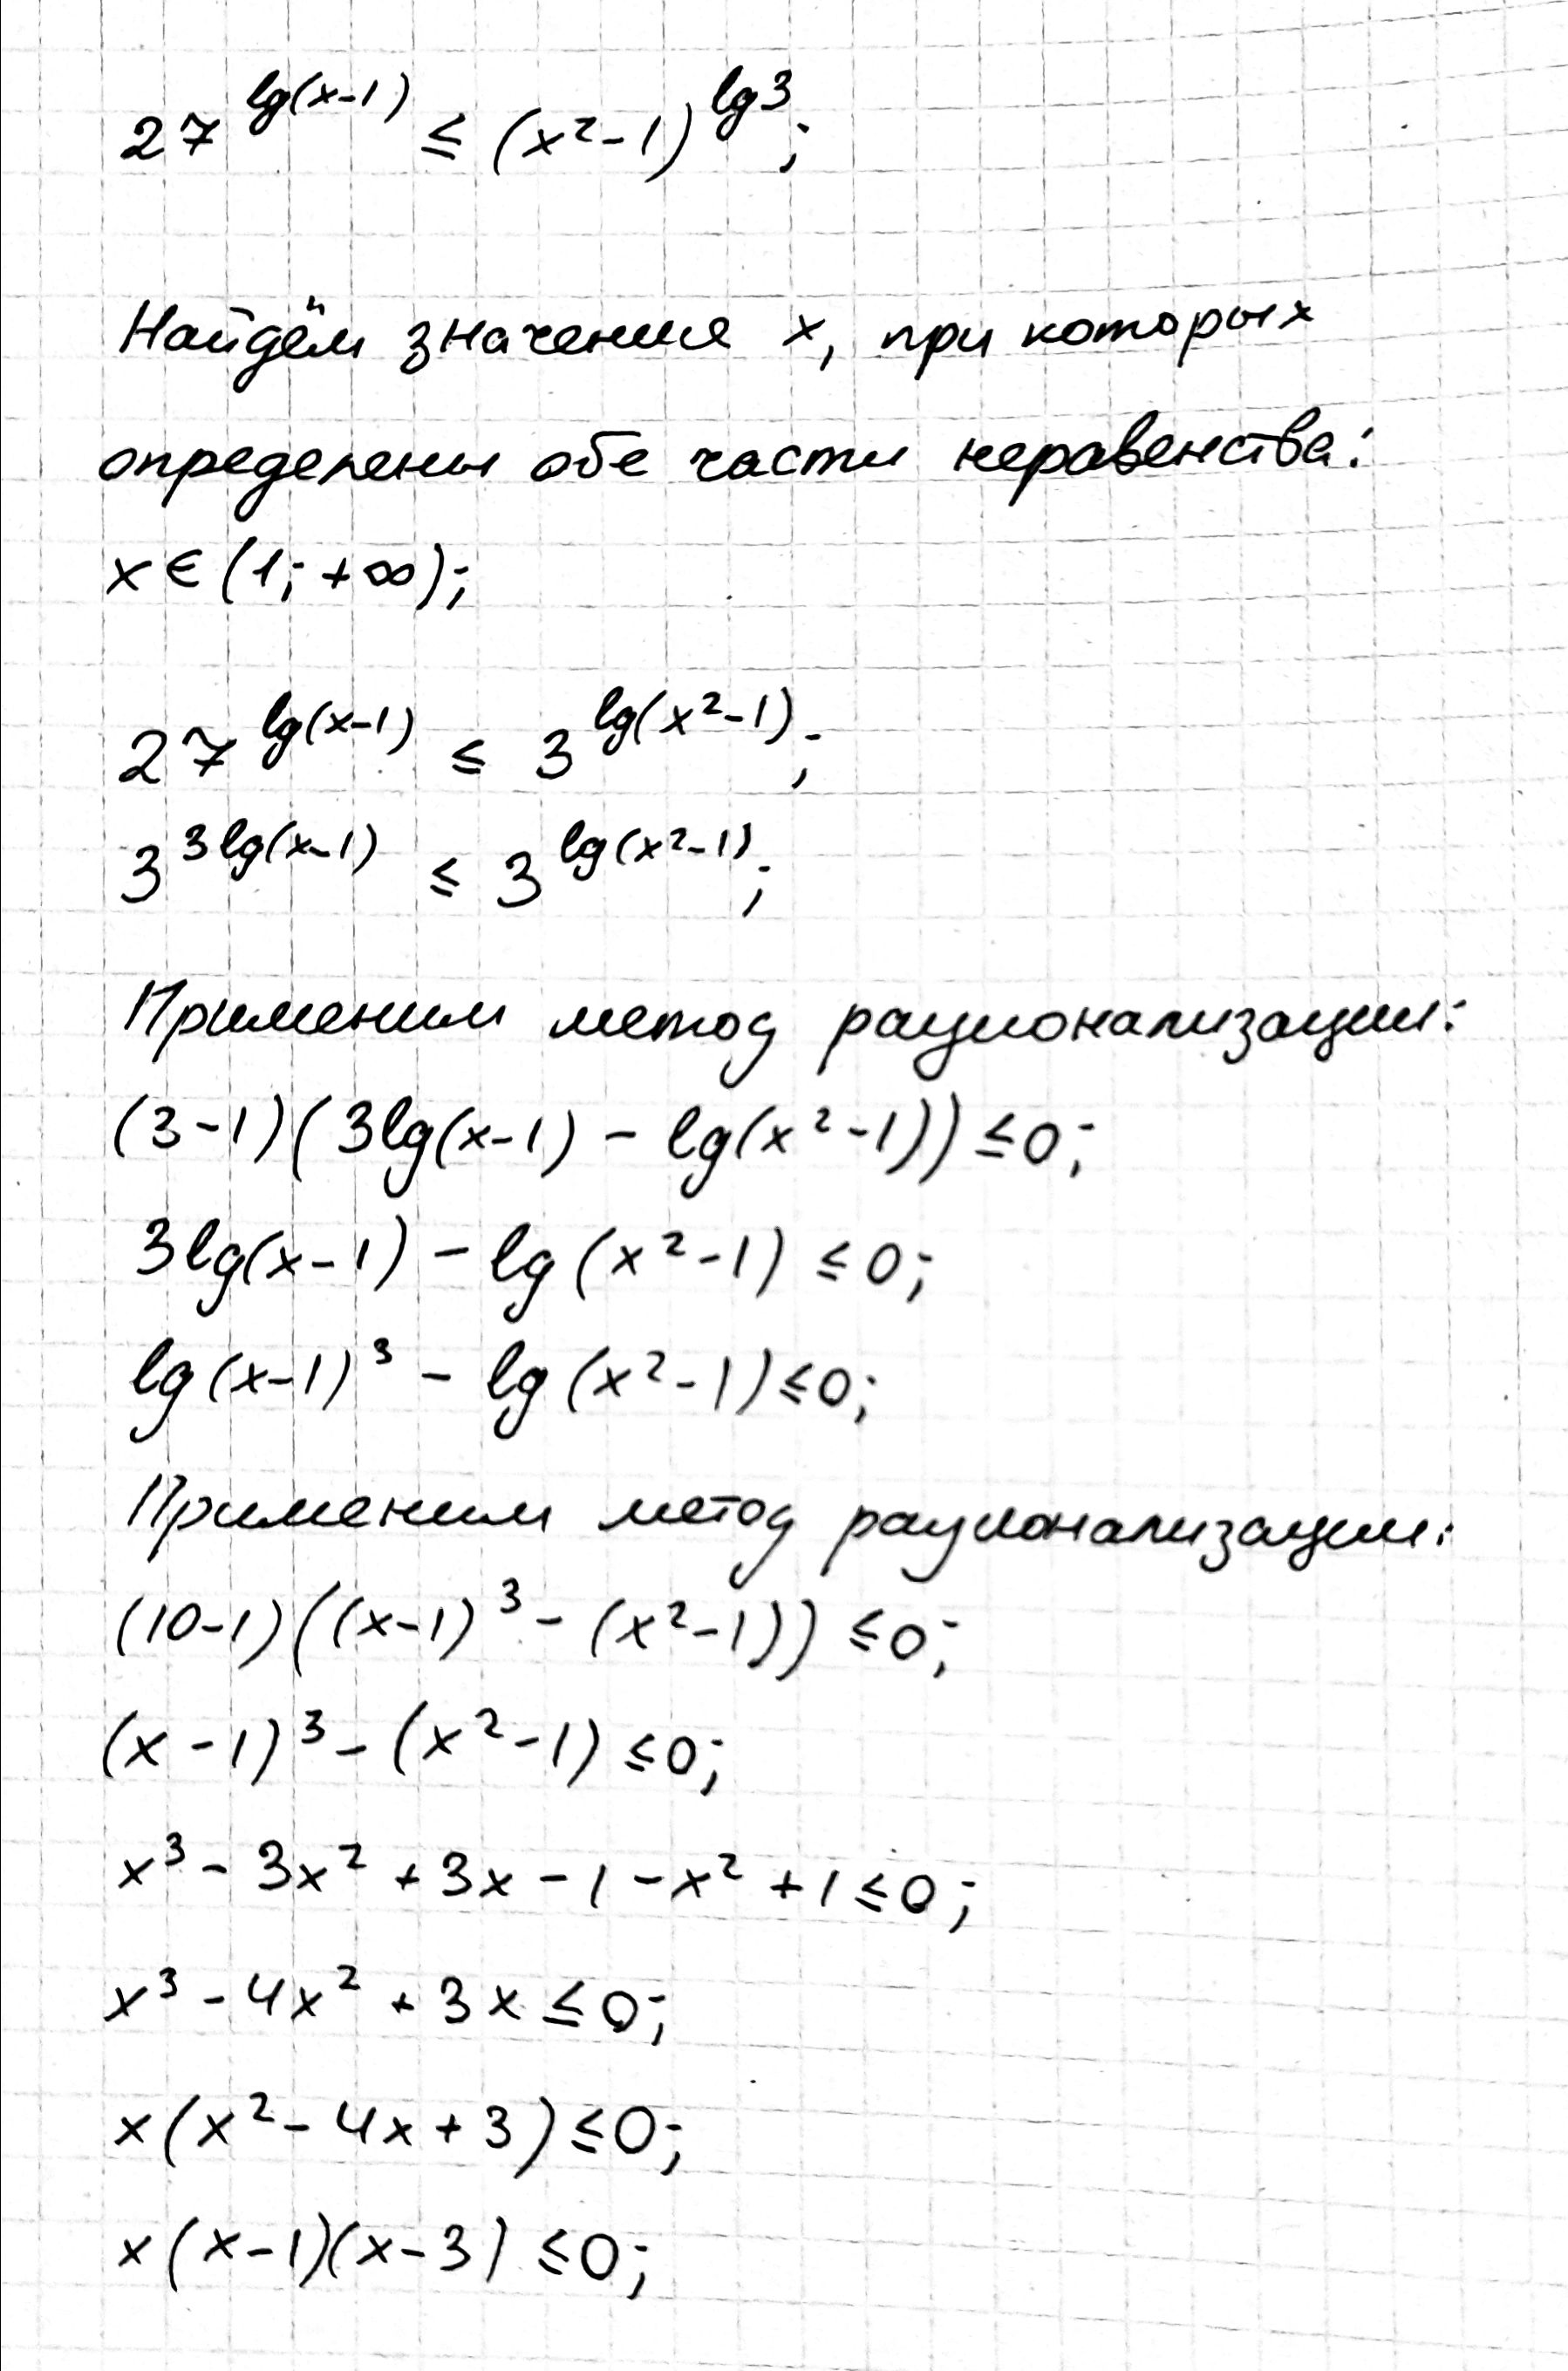 27^{lg(x-1)} ≤ (x²-1)^{lg3};
Найдём значения x, при которых
определены обе части неравенства:
x ∈ (1; +∞);
27^{lg(x-1)} ≤ 3^{lg(x²-1)};
3^{3lg(x-1)} ≤ 3^{lg(x²-1)};
Применим метод рационализации:
(3-1)(3lg(x-1) - lg(x²-1)) ≤ 0;
3lg(x-1) - lg(x²-1) ≤ 0;
lg(x-1)³ - lg(x²-1) ≤ 0;
Применим метод рационализации:
(10-1)((x-1)³ - (x²-1)) ≤ 0;
(x-1)³ - (x²-1) ≤ 0;
x³ - 3x² + 3x - 1 - x² + 1 ≤ 0;
x³ - 4x² + 3x ≤ 0;
x(x² - 4x + 3) ≤ 0;
x(x-1)(x-3) ≤ 0;